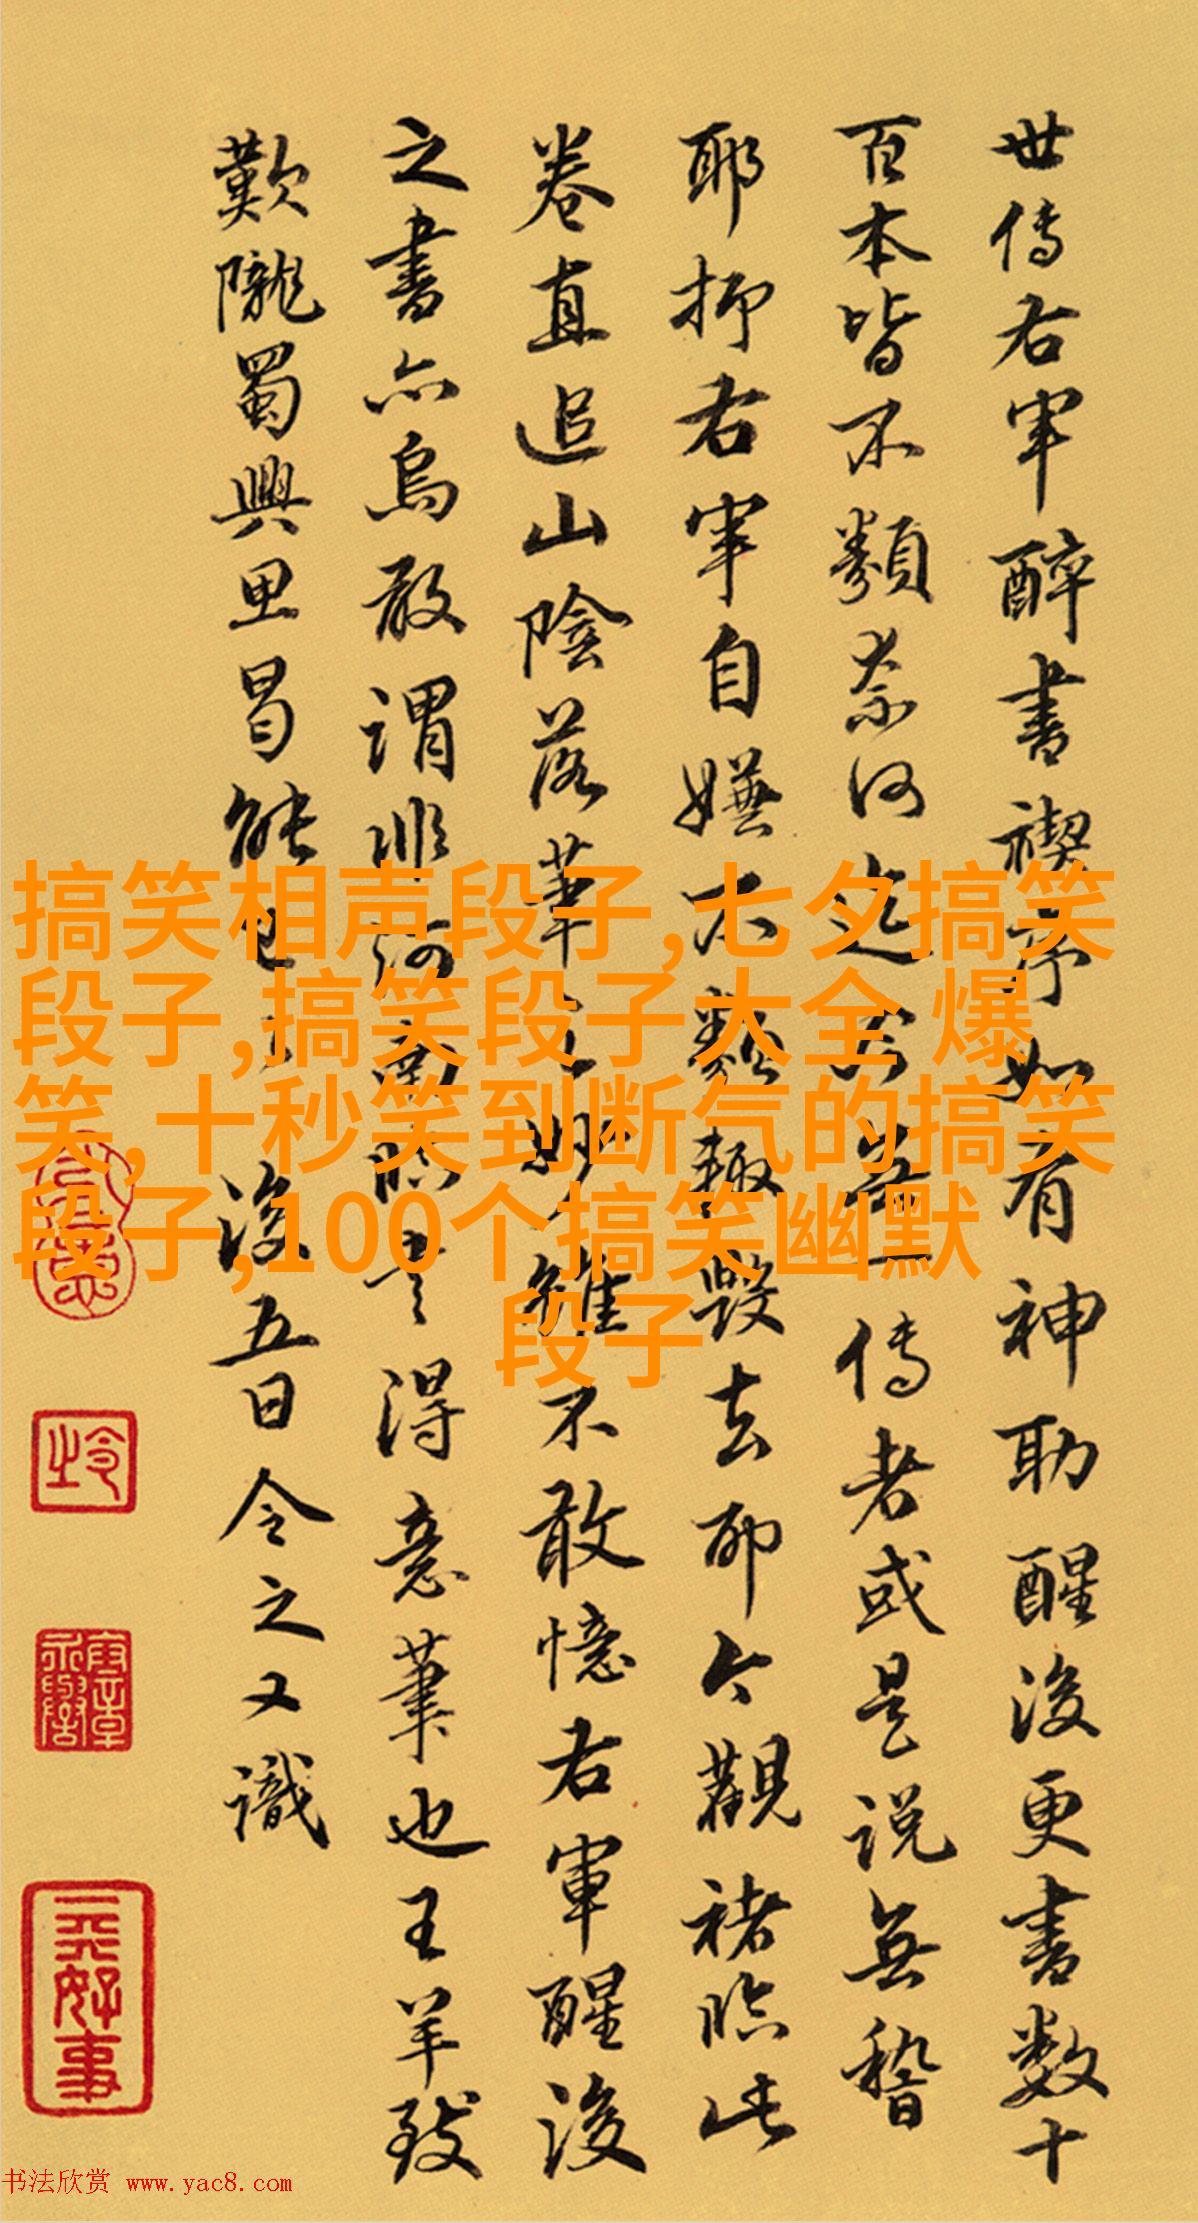 世傳右軍醉書禊序如有神助醒後更書數十
百本皆不類柰何迄今無一傳者或是説無稽
耶抑右軍自嫌不類輒毀去耶今觀褚臨此
卷直追山陰落華之妙雖不敢憶右軍醒後
之書亦烏敢謂非河南臨書得意筆也王羊致
歎隴蜀興思曷能已
後五日令之又識
搞笑相声段子,七夕搞笑
段子,搞笑段子大全 爆
笑,十秒笑到断气的搞笑
段子,100个搞笑幽默
段子
书法欣赏 www.yac8.com